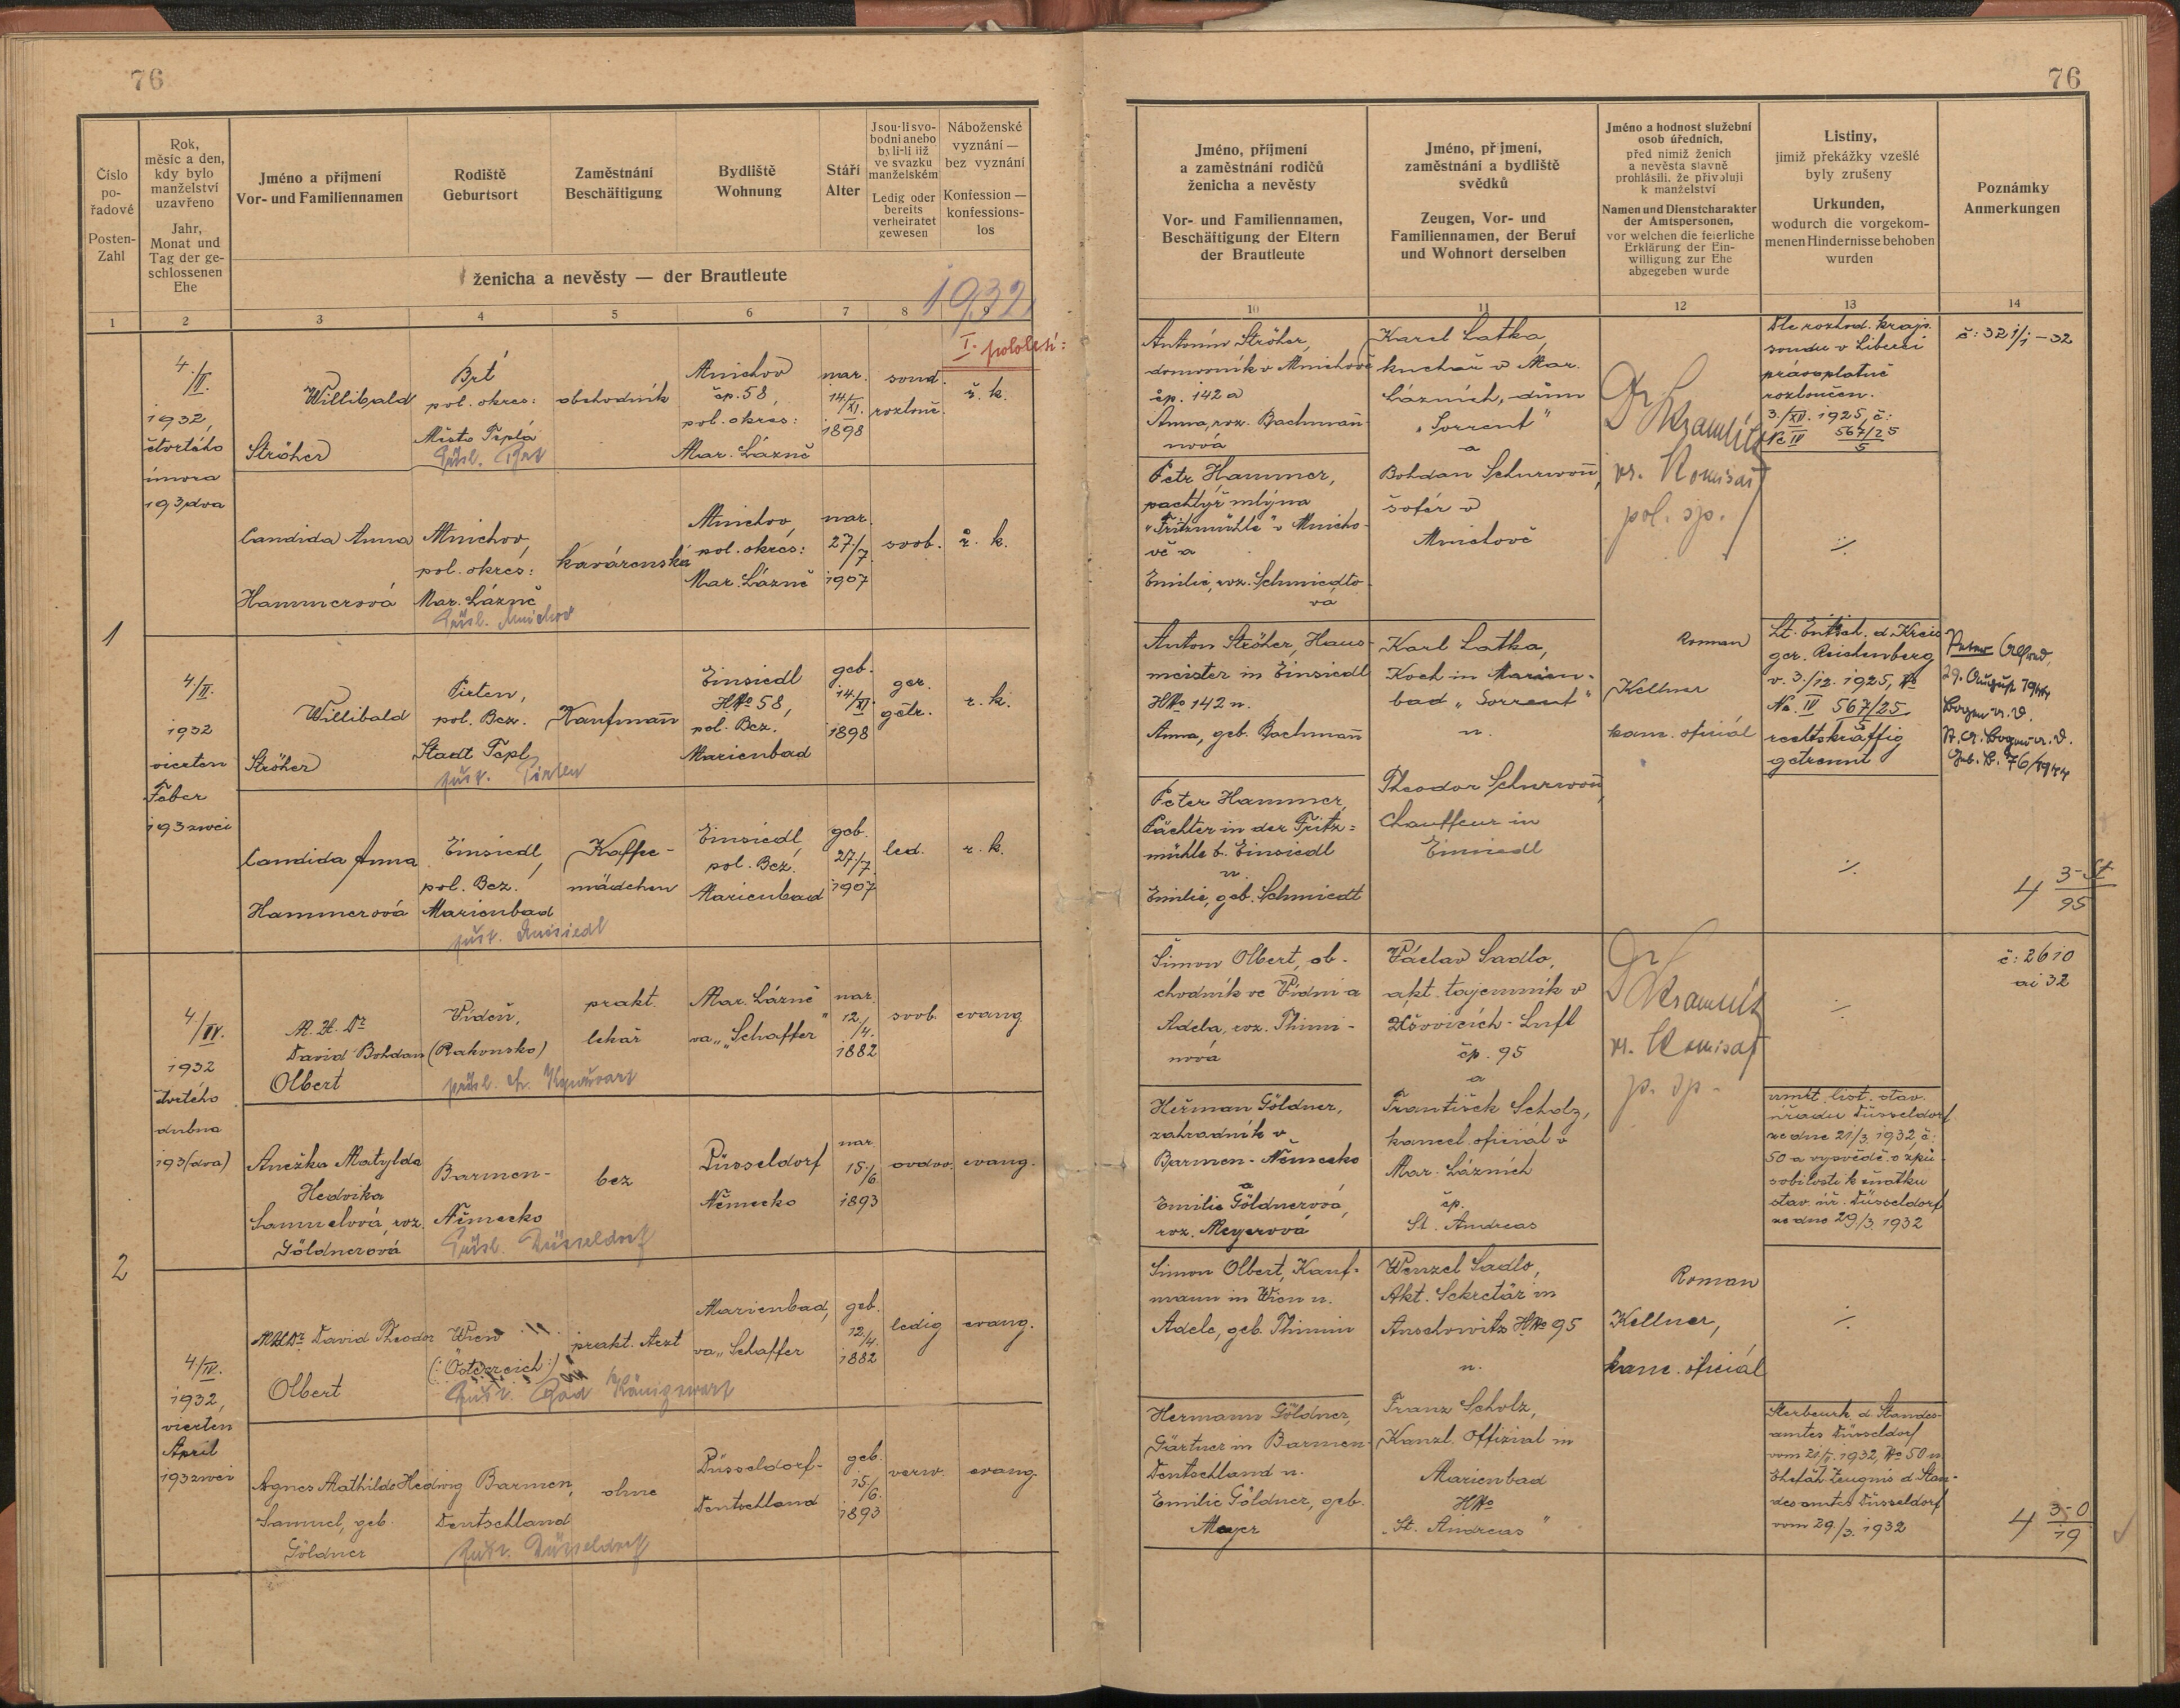 76
Číslo
po-
řadové
Posten-
Zahl
Rok,
měsíc a den,
kdy bylo
manželství
uzavřeno
Jahr,
Monat und
Tag der ge-
schlossenen
Ehe
Jméno a příjmení
Vor- und Familiennamen
Rodiště
Geburtsort
Zaměstnání
Beschäftigung
Bydliště
Wohnung
Stáří
Alter
Jsou-li svo-
bodni anebo
byli-li již
ve svazku
manželském
Ledig oder
bereits
verheiratet
gewesen
Náboženské
vyznání —
bez vyznání
Konfession —
konfessions-
los
ženicha a nevěsty — der Brautleute
1932
1
2
3
4
5
6
7
8
9
I. pololetí:
1
4./II.
1932,
čtvrtého
února
193/dva
Willibald
Ströher
Brť
pol. okres:
Město Teplá
přísl. Brt
obchodník
Mnichov
čp. 58,
pol. okres:
Mar. Lázně
nar.
14./XI.
1898
soud.
rozlouč.
ř. k.
Candida Anna
Hammerová
Mnichov,
pol. okres:
Mar. Lázně
přísl. Mnichov
kavárenská
Mnichov,
pol. okres:
Mar. Lázně
nar.
27./7.
1907
svob.
ř. k.
4./II.
1932
vierten
Feber
193zwei
Willibald
Ströher
Pirten,
pol. Bez.
Stadt Tepl
zust. Pirten
Kaufmann
Einsiedl
HNo 58,
pol. Bez.
Marienbad
geb.
14./XI.
1898
ger.
getr.
r. k.
Candida Anna
Hammerová
Einsiedl,
pol. Bez.
Marienbad
zust. Einsiedl
Kaffee-
mädchen
Einsiedl,
pol. Bez.
Marienbad
geb.
27/7.
1907
led.
r. k.
2
4/IV.
1932
čtvrtého
dubna
193(dva)
M. U. Dr
David Bohdan
Olbert
Vídeň,
(Rakousko)
přísl. Kynžvart
prakt.
lékař
Mar. Lázně
va „Schaffer"
nar.
12./4.
1882
svob.
evang
Anežka Matylda
Hedvika
Samuelová, roz.
Göldnerová
Barmen-
Německo
přísl. Düsseldorf
bez
Düsseldorf
Německo
nar.
15./6
1893
ovdov.
evang.
4/IV.
1932,
vierten
April
193zwei
MUDr David Theodor
Olbert
Wien
(:Österreich:)
zust. Bad Königswart
prakt. Arzt
Marienbad,
va „Schaffer
geb.
12./4.
1882
ledig
evang.
Agnes Mathilde Hedwig
Samuel, geb.
Göldner
Barmen,
Deutschland
zust. Düsseldorf
ohne
Düsseldorf-
Deutschland
geb.
15/6.
1893
verw.
evang.
76
Jméno, příjmení
a zaměstnání rodičů
ženicha a nevěsty
Vor- und Familiennamen,
Beschäftigung der Eltern
der Brautleute
Jméno, příjmení,
zaměstnání a bydliště
svědků
Zeugen, Vor- und
Familiennamen, der Beruf
und Wohnort derselben
Jméno a hodnost služební
osob úředních,
před nimiž ženich
a nevěsta slavně
prohlásili, že přivolují
k manželství
Namen und Dienstcharakter
der Amtspersonen,
vor welchen die feierliche
Erklärung der Ein-
willigung zur Ehe
abgegeben wurde
Listiny,
jimiž překážky vzešlé
byly zrušeny
Urkunden,
wodurch die vorgekom-
menen Hindernisse behoben
wurden
Poznámky
Anmerkungen
10
11
12
13
14
Antonín Ströher,
domovník v Mnichově
čp. 142 a
Anna, roz. Bachman̄
nová
Karel Latka,
kuchař v Mar.
Lázních, dům
„Sorrent"
a
Dr Kramliš
vr. Komisař
pol. sp.
Dle rozhod. krajs.
soudu v Liberci
právoplatně
rozloučen.
3./XII. 1925, č:
Nc IV 567/25
5
č: 321/i - 32
Petr Hammer,
pachtýř mlýna
„Fritzmühle" v Mnicho-
vě a
Emilie, roz. Schmiedto-
vá
Bohdan Schurwon̄,
šofér v
Mnichově
./.
Anton Ströher, Haus-
meister in Einsiedl
HNo 142 u.
Anna, geb. Bachman̄
Karl Latka,
Koch in Marien-
bad „Sorrent"
u.
Roman
Kellner
kanc. oficiál
Lt. Entsch. d. Kreis
ger. Reichenberg
v. 3./12. 1925, No
Nc. IV 567/25
5
rechtskräftig
getrennt
Peter Alfred,
29. August 1944
Geb. B. 76/1944
Peter Hammer,
Pächter in der Fritz=
mühle b. Einsiedl
u.
Emilie, geb. Schmiedt
Theodor Schurwon̄,
Chauffeur in
Einsiedl
./.
4 3-St
95
Šimon Olbert, ob-
chodník ve Vídni a
Adela, roz. Thimi-
nová
Václav Sadlo,
akt. tajemník v
Úšovicích-Luft
čp. 95
a
Dr Kramliš
vr. Komisař
p. sp.
./.
č: 2610
ai 32
Heřman Göldner,
zahradník v
Barmen-Německo
a
Emilie Göldnerová,
roz. Meyerová
František Scholz,
kancel. oficiál v
Mar. Lázních
čp.
St. Andreas
úmrt. list. stav.
úřadu Düsseldorf
ze dne 21/3. 1932, č:
50 a vysvědč. o způ-
sobilosti k sňatku
stav. úř. Düsseldorf
ze dne 29/3. 1932
Simon Olbert, Kauf-
mann in Wien u.
Adele, geb. Thimin
Wenzel Sadlo,
Akt. Sekretär in
Auschowitz HNo 95
u.
Roman
Kellner,
kanc. oficiál
./.
Hermann Göldner,
Gärtner in Barmen-
Deutschland u.
Emilie Göldner, geb.
Meyer
Franz Scholz,
Kanzl. Offizial in
Marienbad
HNo
„St. Andreas"
Sterbeurk. d. Standes-
amtes Düsseldorf
vom 21/3. 1932, No 50 u.
Ehefäh. Zeugnis d. Stan-
desamtes Düsseldorf
vom 29./3. 1932
4 3-0
19